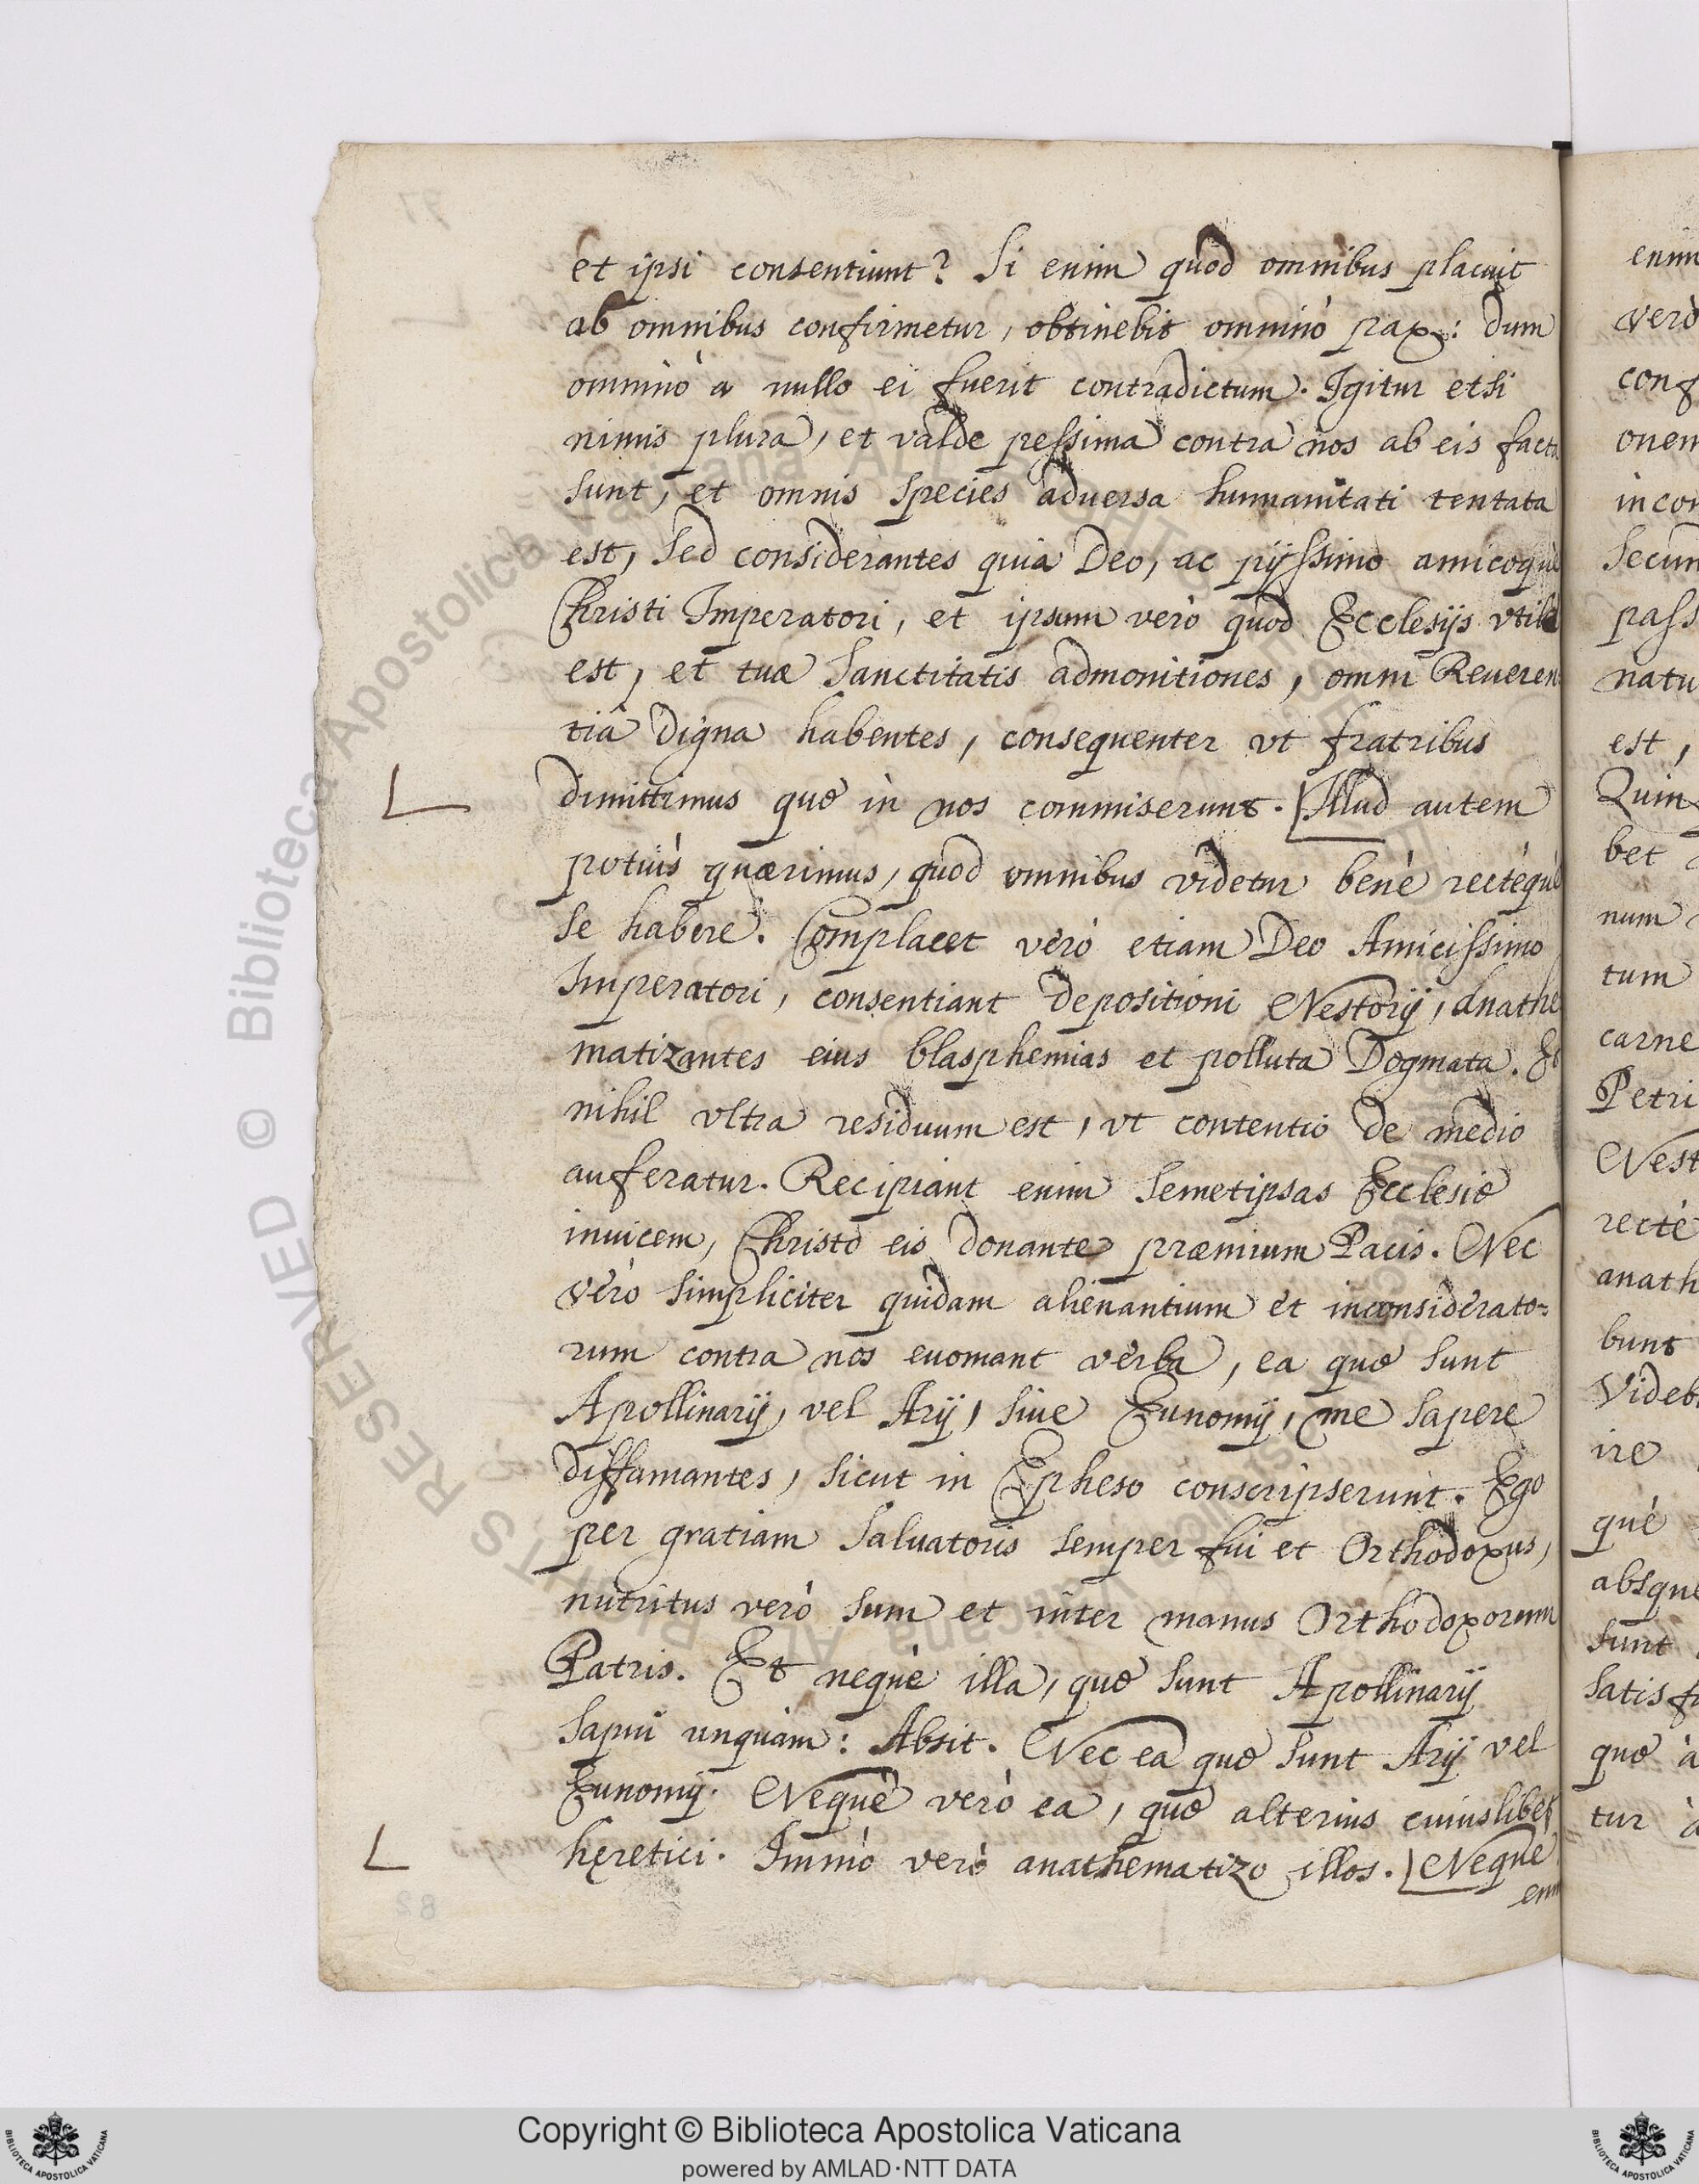 et ipsi consentiunt? Si enim quod omnibus placuit
ab omnibus confirmetur, obtinebit omninò pax: dum
omninò a nullo ei fuerit contradictum. Igitur etsi
nimis plura, et valde pessima contra nos ab eis facta
sunt, et omnis species aduersa humanitati tentata
est, sed considerantes quia Deo, ac pijssimo amicoquè
Christi Imperatori, et ipsum verò quod Ecclesijs vtile
est, et tuæ Sanctitatis admonitiones, omni Reueren
tia digna habentes, consequenter vt fratribus
dimittimus quę in nos commiserunt. [Illud autem
potuis quærimus, quod omnibus videtur benè rectèquè
se habere. Complacet verò etiam Deo Amicissimo
Imperatori, consentiant depositioni Nestorij, anathe
matizantes eius blasphemias et polluta Dogmata. Et
nihil vltra residuum est, vt contentio de medio
auferatur. Recipiant enim semetipsas Ecclesię
inuicem, Christo eis donante præmium Pacis. Nec
verò simpliciter quidam alienantium et inconsiderato=
rum contra nos euomant verba, ea quę sunt
Apollinarij, vel Arij, siue Eunomij, me sapere
diffamantes, sicut in Epheso conscripserunt. Ego
per gratiam Saluatoris semper fui et Orthodoxus,
nutritus verò sum et inter manus Orthodoxorum
Patris. Et nequè illa, quę sunt Apollinarij
sapui unquam: Absit. Nec ea quę sunt Arij vel
Eunomij. Nequè verò ea, quę alterius cuiuslibet
hęretici. Immò verò anathematizo illos. [Neque
enim
enim
verò
conf
onem
incor
secun
pass
natu
est,
Quin
bet
num
tum
carne
Petri
Nest
rectè
anath
bunt
Videb
ire
què
absque
sunt
satisf
quę à
tur à
© Biblioteca Apostolica Vaticana ALL RIGHTS RESERVED
Copyright © Biblioteca Apostolica Vaticana
powered by AMLAD·NTT DATA
BIBLIOTECA APOSTOLICA VATICANA
BIBLIOTECA APOSTOLICA VATICANA